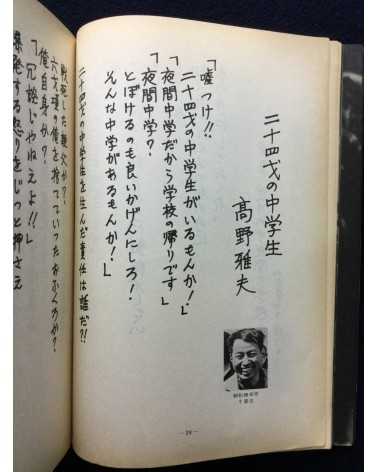 二十四才の中学生
髙野雅夫
「嘘つけ!!
二十四才の中学生がいるもんか!」
「夜間中学だから学校の帰りです」
「夜間中学?
とぼけるのも良いかげんにしろ!
そんな中学があるもんか!」
二十四才の中学生を生んだ責任は誰だ?!
戦死した親父か?
六才の俺を捨てていったおふくろか?
俺自身か?
「冗談じゃねえよ!!」
爆発する怒りをじっと押さえ